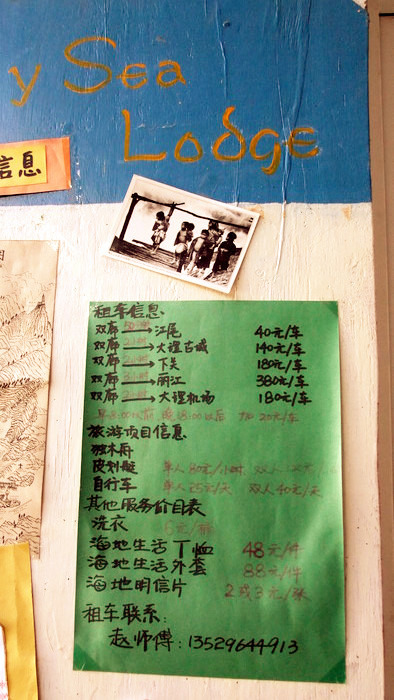 y Sea
Lodge
信息
租车信息
双廊 → 江尾 40元/车
双廊 → 大理古城 140元/车
双廊 → 下关 180元/车
双廊 → 丽江 380元/车
双廊 → 大理机场 180元/车
早8:00以前 晚18:00以后 加20元/车
旅游项目信息
独木舟
皮划艇 单人80元/小时 双人
自行车 单人25元/天 双人40元/天
其他服务价目表
洗衣
海地生活T恤 48元/件
海地生活外套 88元/件
海地明信片 2或3元/张
租车联系:
赵师傅:13529644913